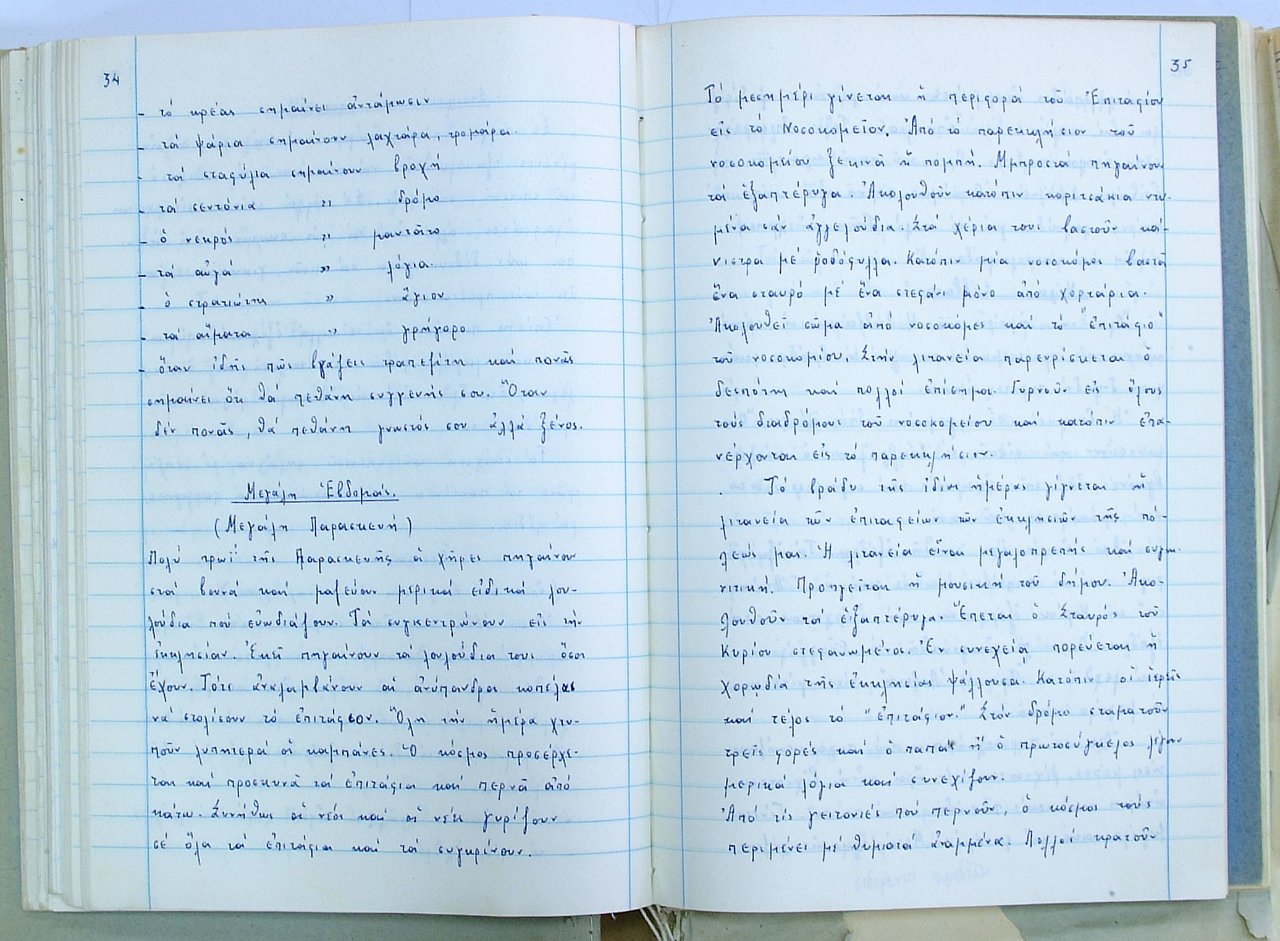 34
- τό κρέας σημαίνει ἀντάμωσιν
- τά ψάρια σημαίνουν λαχτάρα, τρομάρα.
- τά σταφύλια σημαίνουν βροχή
- τά σεντόνια " δρόμο
- ὁ νεκρός " μαντᾶτο
- τά αὐγά " λόγια.
- ὁ στρατιώτης " ἅγιον
- τά αἵματα " γρήγορο
- ὅταν ἰδῆς πῶς βγάζεις τραπεζίτη καί πονᾶς
σημαίνει ὅτι θά πεθάνη συγγενής σου. Ὅταν
δέν πονᾶς, θά πεθάνη γνωστός σου ἀλλά ξένος.
Μεγάλη Ἑβδομάς.
(Μεγάλη Παρασκευή)
Πολύ πρωΐ τῆς Παρασκευῆς οἱ χῆρες πηγαίνουν
στά βουνά καί μαζεύουν μερικά εἰδικά λου-
λούδια πού εὐωδιάζουν. Τά συγκεντρώνουν εἰς τήν
ἐκκλησίαν. Ἐκεῖ πηγαίνουν τά λουλούδια τους ὅσοι
ἔχουν. Τότε ἀναλαμβάνουν αἱ ἀνύπανδραι κοπέλας
νά στολίσουν τό ἐπιτάφιον. Ὅλη τήν ἡμέρα χτυ-
ποῦν λυπητερά οἱ καμπάνες. Ὁ κόσμος προσέρχε-
ται καί προσκυνᾶ τά ἐπιτάφια καί περνᾶ ἀπό
κάτω. Συνήθως οἱ νέοι καί οἱ νέες γυρίζουν
σέ ὅλα τά ἐπιτάφια καί τά συγκρίνουν.
35
Τό μεσημέρι γίνεται ἡ περιφορά τοῦ Ἐπιταφίου
εἰς τό Νοσοκομεῖον. Ἀπό τό παρεκκλήσιον τοῦ
νοσοκομείου ξεκινᾶ ἡ πομπή. Μμπροστά πηγαίνουν
τά ἑξαπτέρυγα. Ἀκολουθοῦν κατόπιν κοριτσάκια ντυ-
μένα σάν ἀγγελούδια. Στά χέρια τους βαστοῦν κά-
νιστρα μέ ροδόφυλλα. Κατόπιν μία νοσοκόμος βαστᾶ
ἕνα σταυρό μέ ἕνα στεφάνι μόνο ἀπό χορτάρια.
Ἀκολουθεῖ σῶμα ἀπό νοσοκόμες καί τό "ἐπιτάφιο"
τοῦ νοσοκομίου. Στήν λιτανεία παρευρίσκεται ὁ
δεσπότης καί πολλοί ἐπίσημοι. Γυρνοῦν εἰς ὅλους
τούς διαδρόμους τοῦ νοσοκομείου καί κατόπιν ἐπα-
νέρχονται εἰς τό παρεκκλήσιον.
Τό βράδυ τῆς ἰδίας ἡμέρας γίγνεται ἡ
λιτανεία τῶν ἐπιταφείων τῶν ἐκκλησιῶν τῆς πό-
λεώς μας. Ἡ λιτανεία εἶναι μεγαλοπρεπής καί συγκι-
νιτική. Προηγεῖται ἡ μουσική τοῦ δήμου. Ἀκο-
λουθοῦν τά ἑξαπτέρυγα. Ἕπεται ὁ Σταυρός τοῦ
Κυρίου στεφανωμένος. Ἐν συνεχείᾳ πορεύεται ἡ
χορῳδία τῆς ἐκκλησίας ψάλλουσα. Κατόπιν οἱ ἱερεῖς
καί τέλος τό "ἐπιτάφιον." Στόν δρόμο σταματοῦν
τρεῖς φορές καί ὁ παπάς ἤ ὁ πρωτοσύγκελος λέγουν
μερικά λόγια καί συνεχίζουν.
Ἀπό τίς γειτονιές πού περνοῦν, ὁ κόσμος τούς
περιμένει μέ θυμιατά ἀναμμένα. Πολλοί κρατοῦν